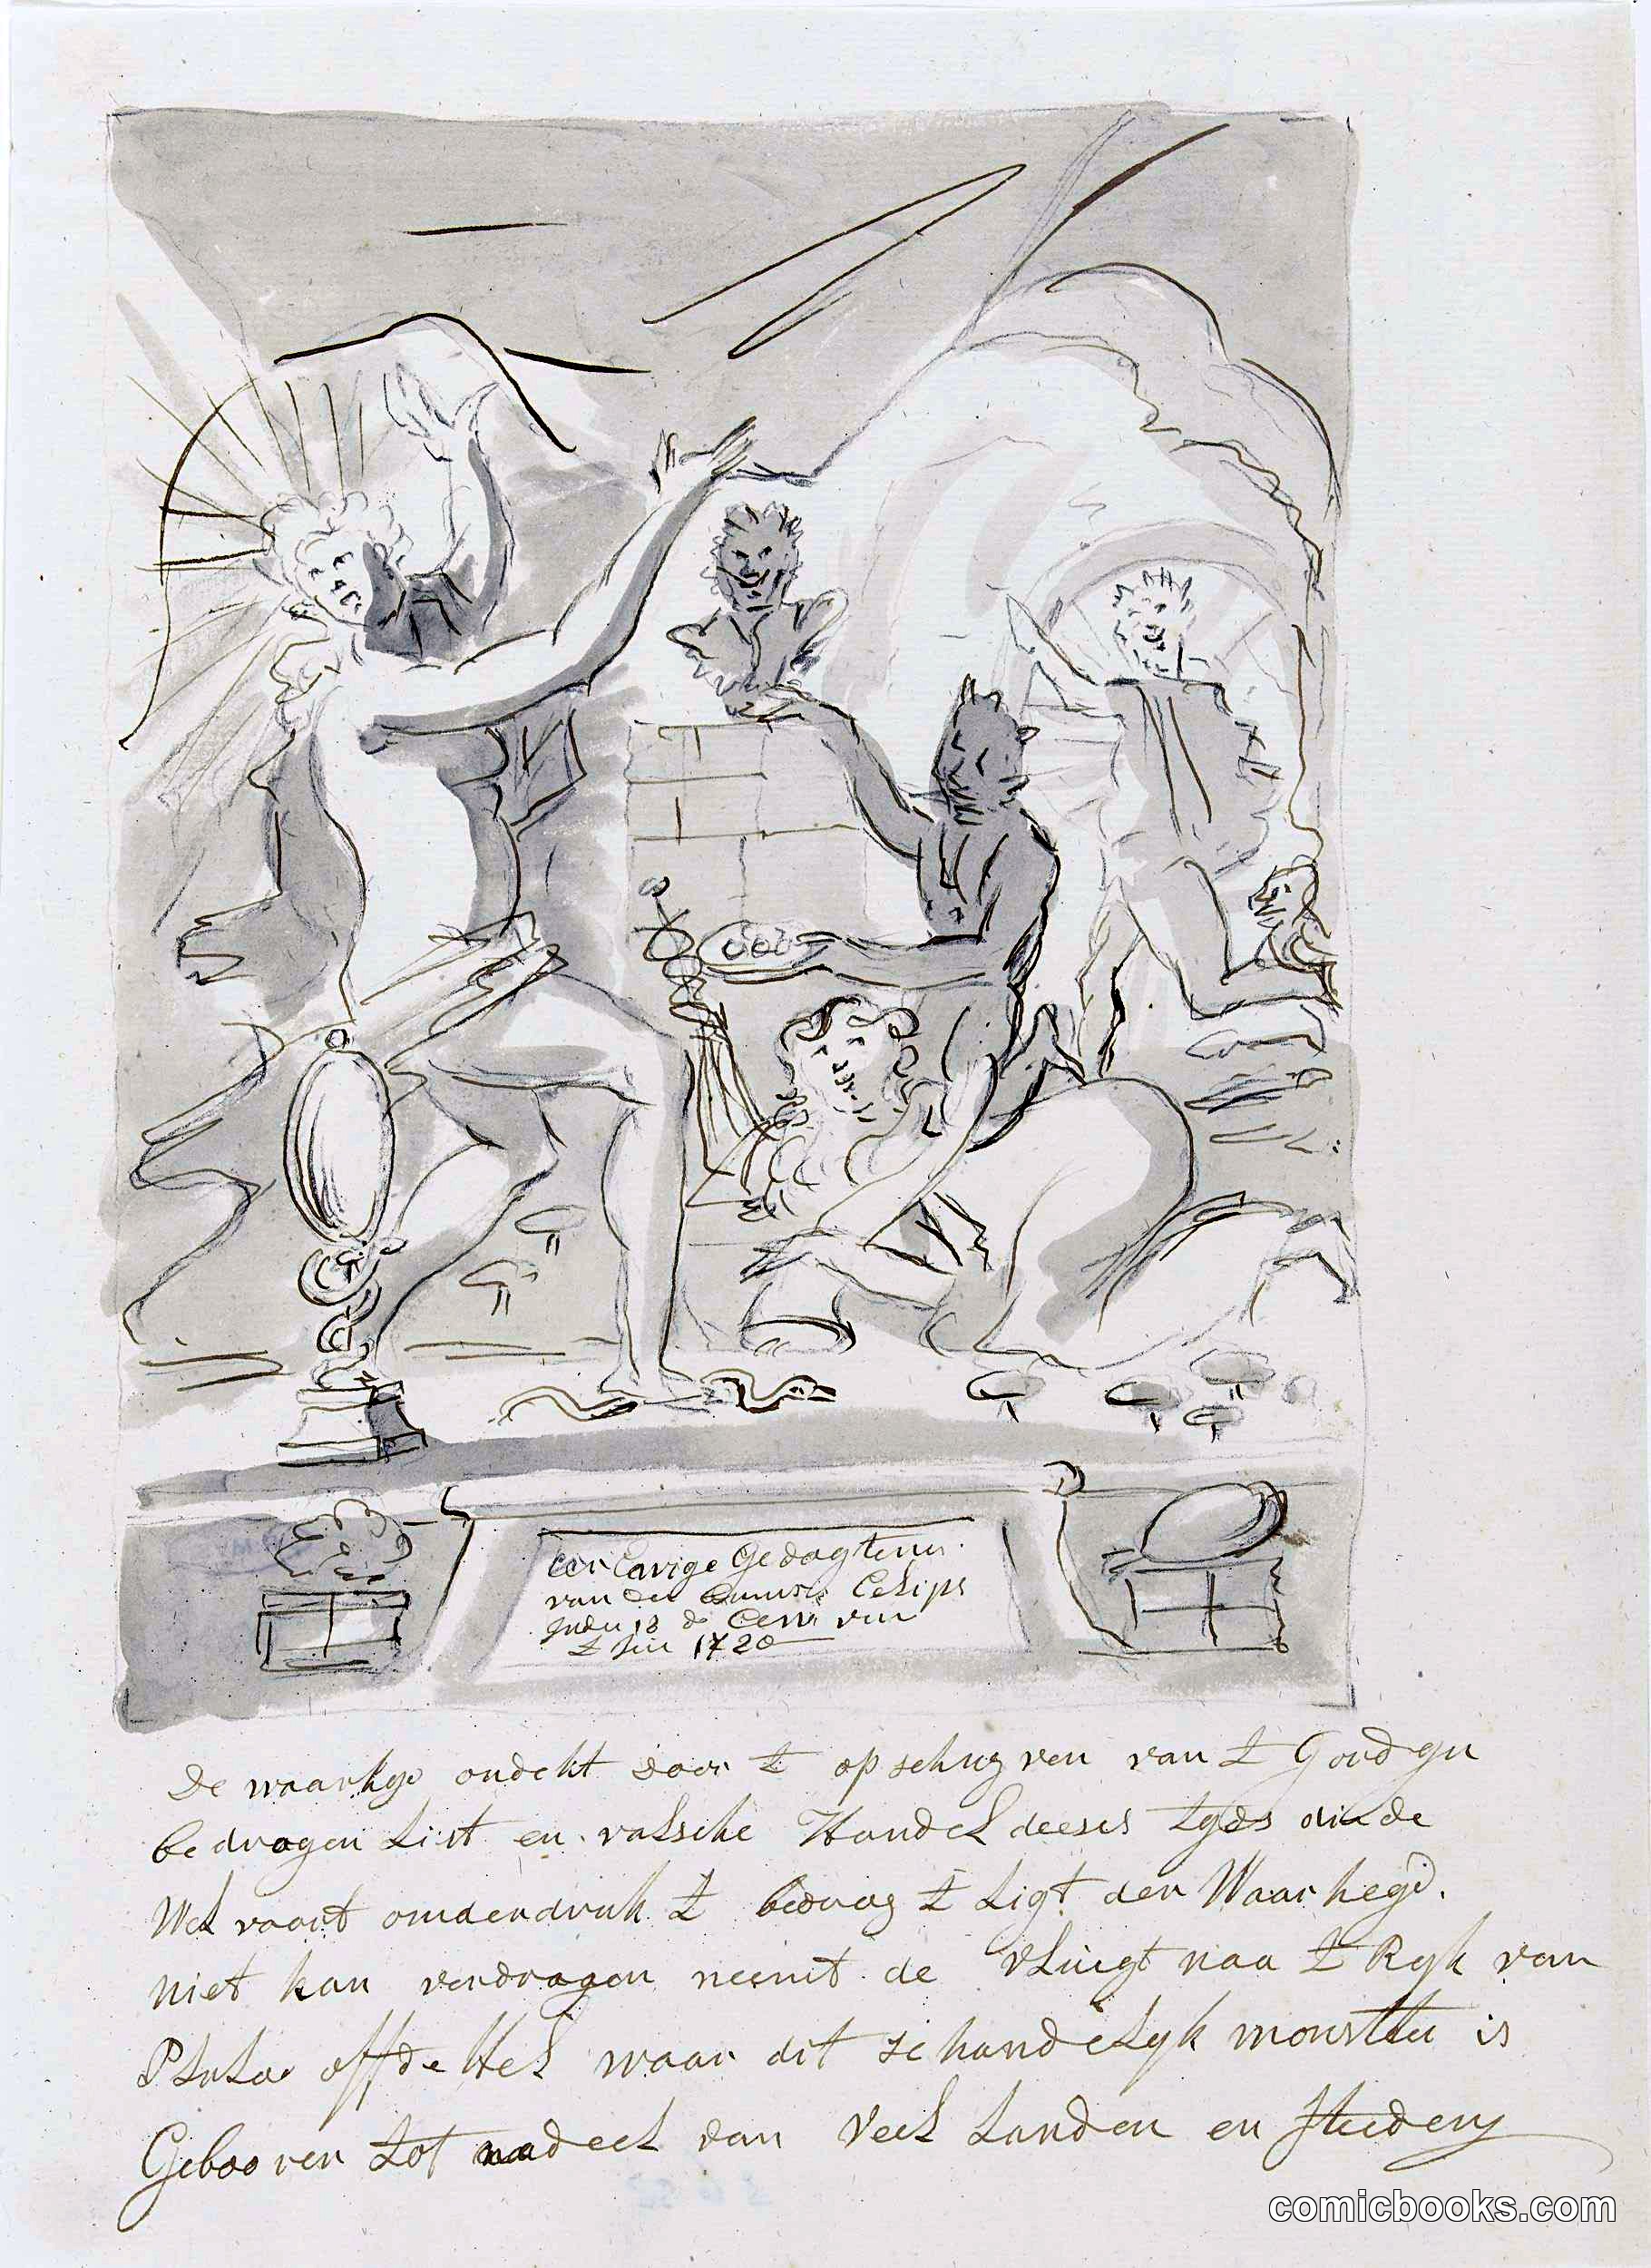 Eeuwige Gedagtenis
van der Eclips
18 de van
1720
De waarhyd ondekt door t op schuyven van t Gordyn
bedrogen List en valsche Handel deeses tyds die de
Wel vaart onderdruk t bedrog t Ligt der Waarheyd.
niet kan verdragen neemt de vlugt naa t Ryk van
Pluto off de Hel waar dit schandelyk monster is
Gebooren tot nadeel van veel Landen en Steeden
comicbooks.com